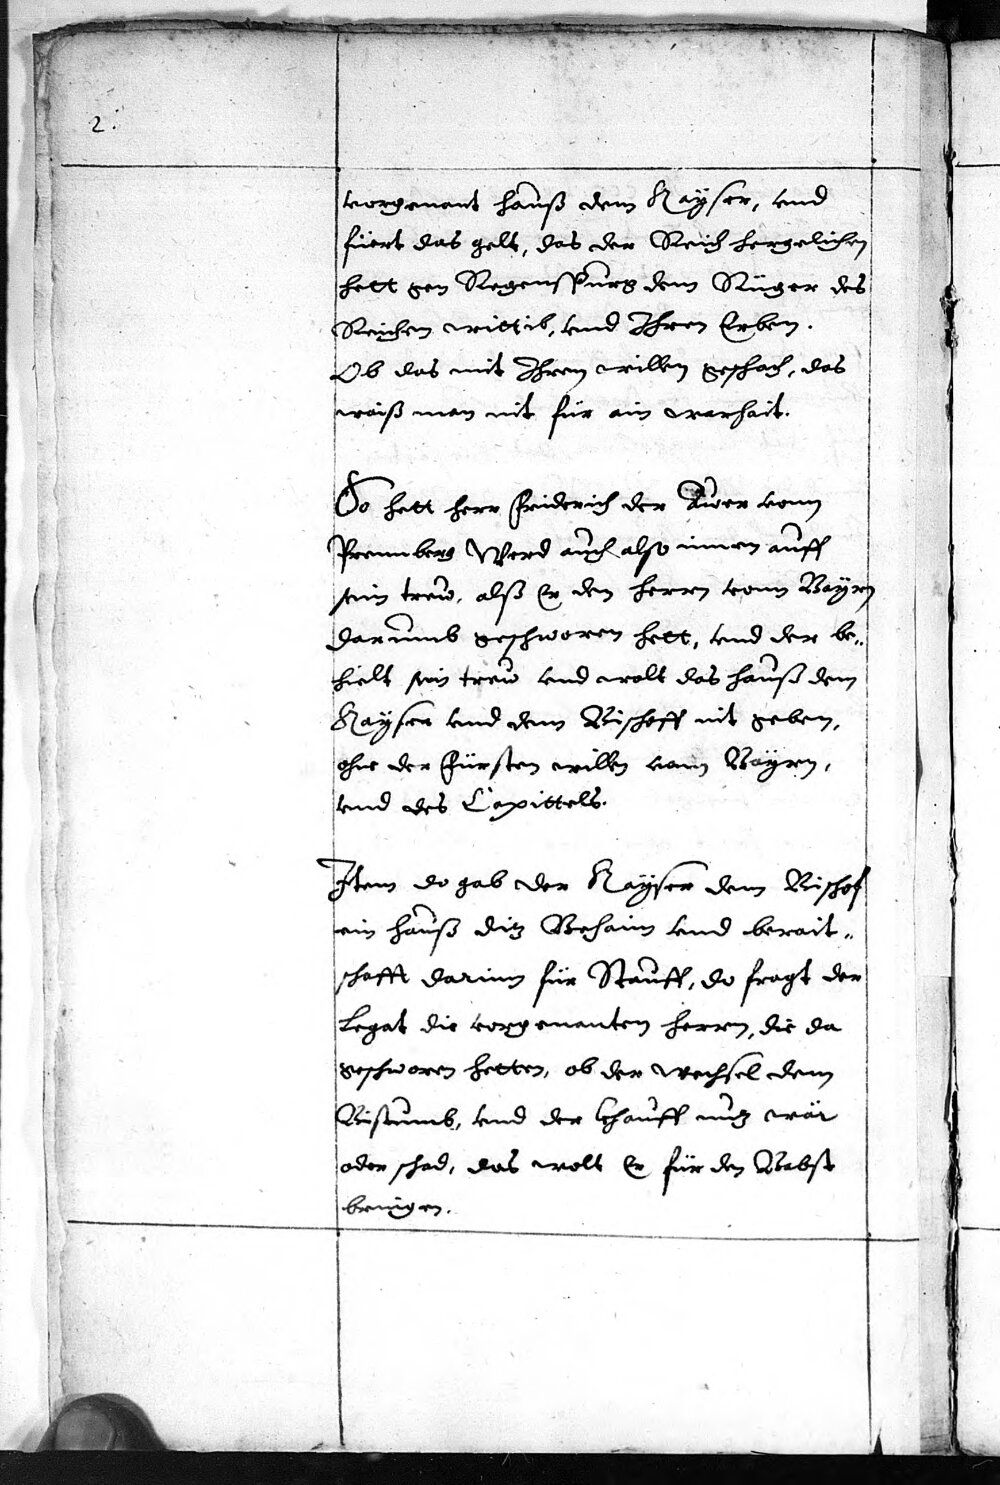 2.
vorgenant hauß dem Kayser, vnd
füert das gelt, das der Reich hergelichen
hett gen Regenspurg dem Rüger des
Reichen wittib, vnd Ihren Erben.
Ob das mit Ihrem willen geschach, das
waiß man nit für ain warhait.
So hett herr Friderich der Awer vonn
Prennberg Werd auch also innen auff
sein trew, alß Er den herrn vonn Bayrn
darumb geschworen hett, vnd der be„
hielt sein trew vnd wolt das hauß dem
Kayser vnd dem Bischoff nit geben,
ohne der Fürsten willen vonn Bayrn,
vnd des Capittels.
Item do gab der Kayser dem Bischof
ein hauß ditz Behaim vnd berait„
schafft darinn für Stauff, do fragt der
Legat die vorgenanten herrn, die da
geschworen hetten, ob der wechsel dem
Bistumb, vnd der khauff nutz wär
oder schad, das wolt Er für den Babst
bringen.